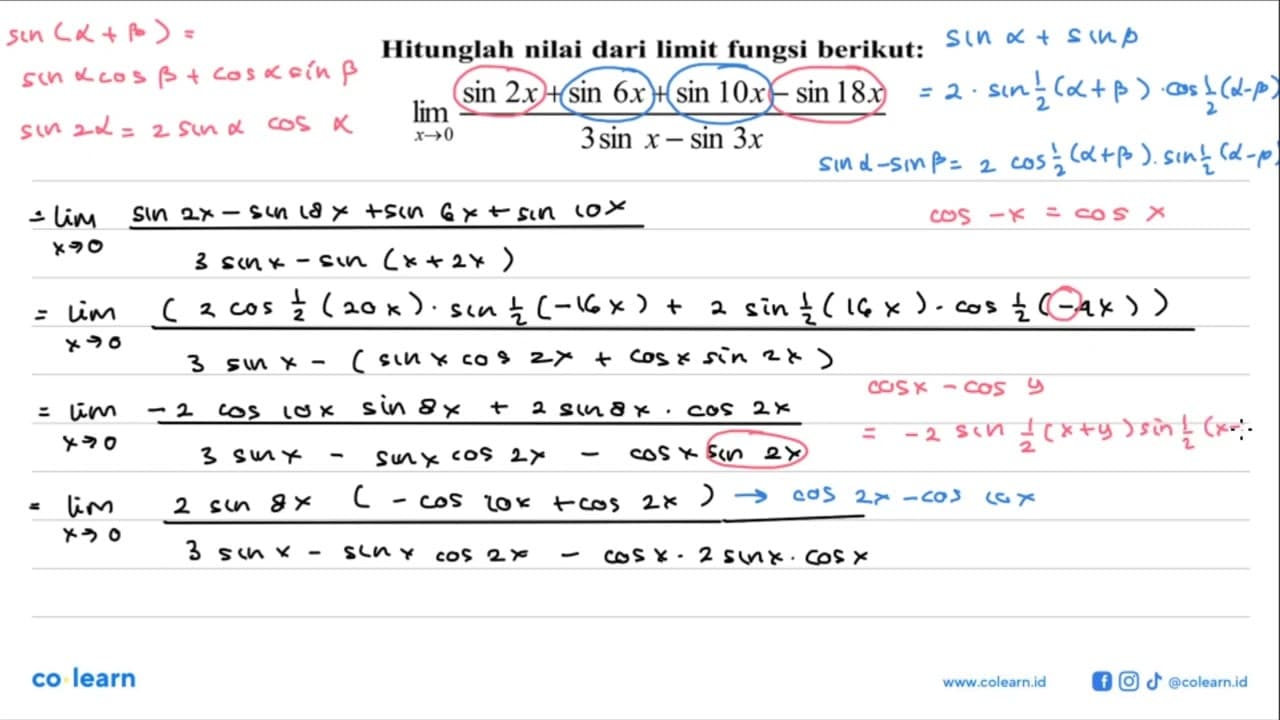 sin (α + β) =
sin α cos β + cos α sin β
sin 2α = 2 sin α cos α
Hitunglah nilai dari limit fungsi berikut:
lim x→0 (sin 2x + sin 6x + sin 10x − sin 18x) / (3 sin x − sin 3x)
sin α + sin β
= 2 · sin ½ (α + β) · cos ½ (α - β)
sin α - sin β = 2 cos ½ (α + β) · sin ½ (α - β)
cos -x = cos x
= lim x→0 (sin 2x - sin 18x + sin 6x + sin 10x) / (3 sin x - sin (x + 2x))
= lim x→0 (2 cos ½ (20x) · sin ½ (-16x) + 2 sin ½ (16x) · cos ½ (-4x)) / (3 sin x - (sin x cos 2x + cos x sin 2x))
= lim x→0 (-2 cos 10x sin 8x + 2 sin 8x · cos 2x) / (3 sin x - sin x cos 2x - cos x sin 2x)
cos x - cos y
= -2 sin ½ (x + y) sin ½ (x -
= lim x→0 2 sin 8x (- cos 10x + cos 2x) / (3 sin x - sin x cos 2x - cos x · 2 sin x · cos x)
→ cos 2x - cos 10x
co learn
www.colearn.id
@colearn.id